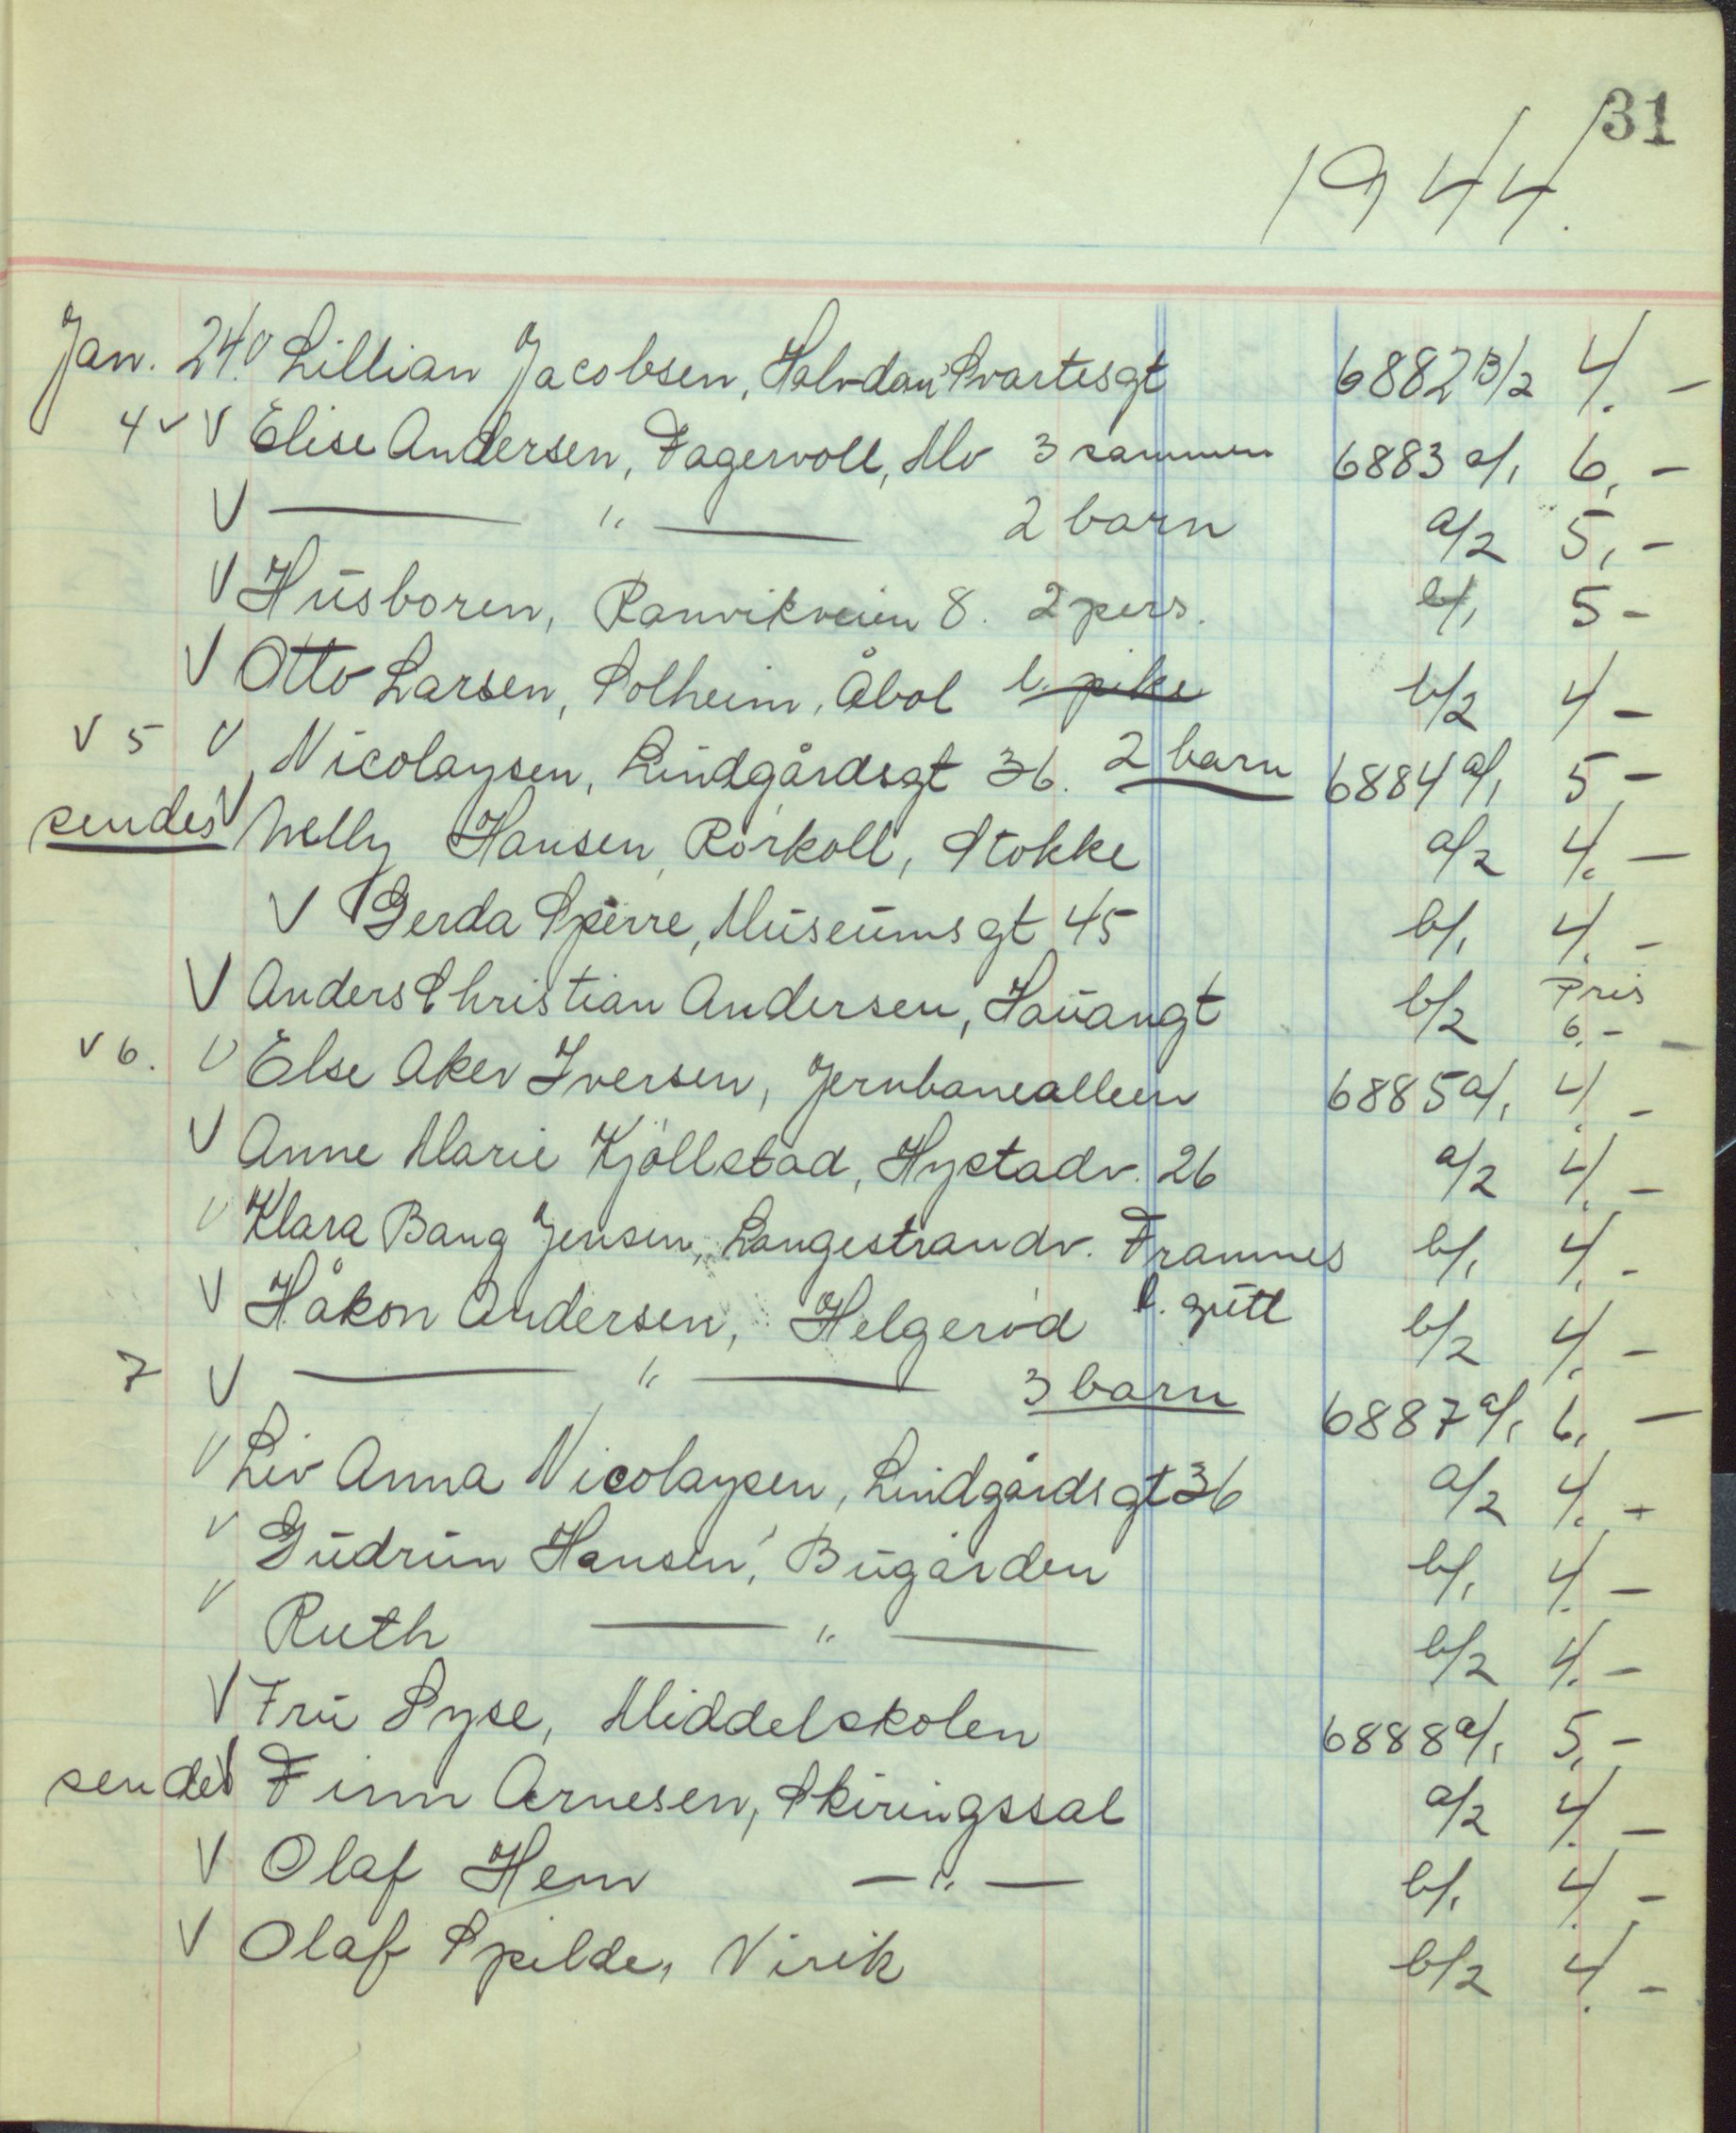 31
1944.
Jan. 24. V Lillian Jacobsen, Halvdan Svartesgt 6882 B/2 4. -
4 V V Elise Andersen, Fagervoll, Mo 3 sammen 6883 a/1 6, -
V — " — 2 barn a/2 5, -
V Husboren, Ranvikveien 8. 2 pers. b/1 5 -
V Otto Larsen, Solheim, Åbol l. pike b/2 4 -
V 5 V Nicolaysen, Lindgårdsgt 36. 2 barn 6884 a/1 5 -
sendes V Nelly Hansen, Rørkoll, Stokke a/2 4. -
V Gerda Sperre, Museumsgt 45 b/1 4. -
V Anders Christian Andersen, Hauangt b/2 Pris 6. -
V 6. V Else Aker Iversen, Jernbanealleen 6885 a/1 4. -
V Anne Marie Kjöllstad, Hystadv. 26 a/2 4. -
V Klara Bang Jensen, Langestrandv. Framnes b/1 4. -
V Håkon Andersen, Helgerød l. gutt b/2 4. -
7 V — " — 3 barn 6887 a/1 6, -
V Liv Anna Nicolaysen, Lindgårdsgt 36 a/2 4. -
V Gudrun Hansen, Bugården b/1 4. -
V Ruth — " — b/2 4. -
V Fru Syse, Middelskolen 6888 a/1 5, -
sendes V Finn Arnesen, Skiringssal a/2 4. -
V Olaf Hem — " — b/1 4. -
V Olaf Spilde, Virik b/2 4. -